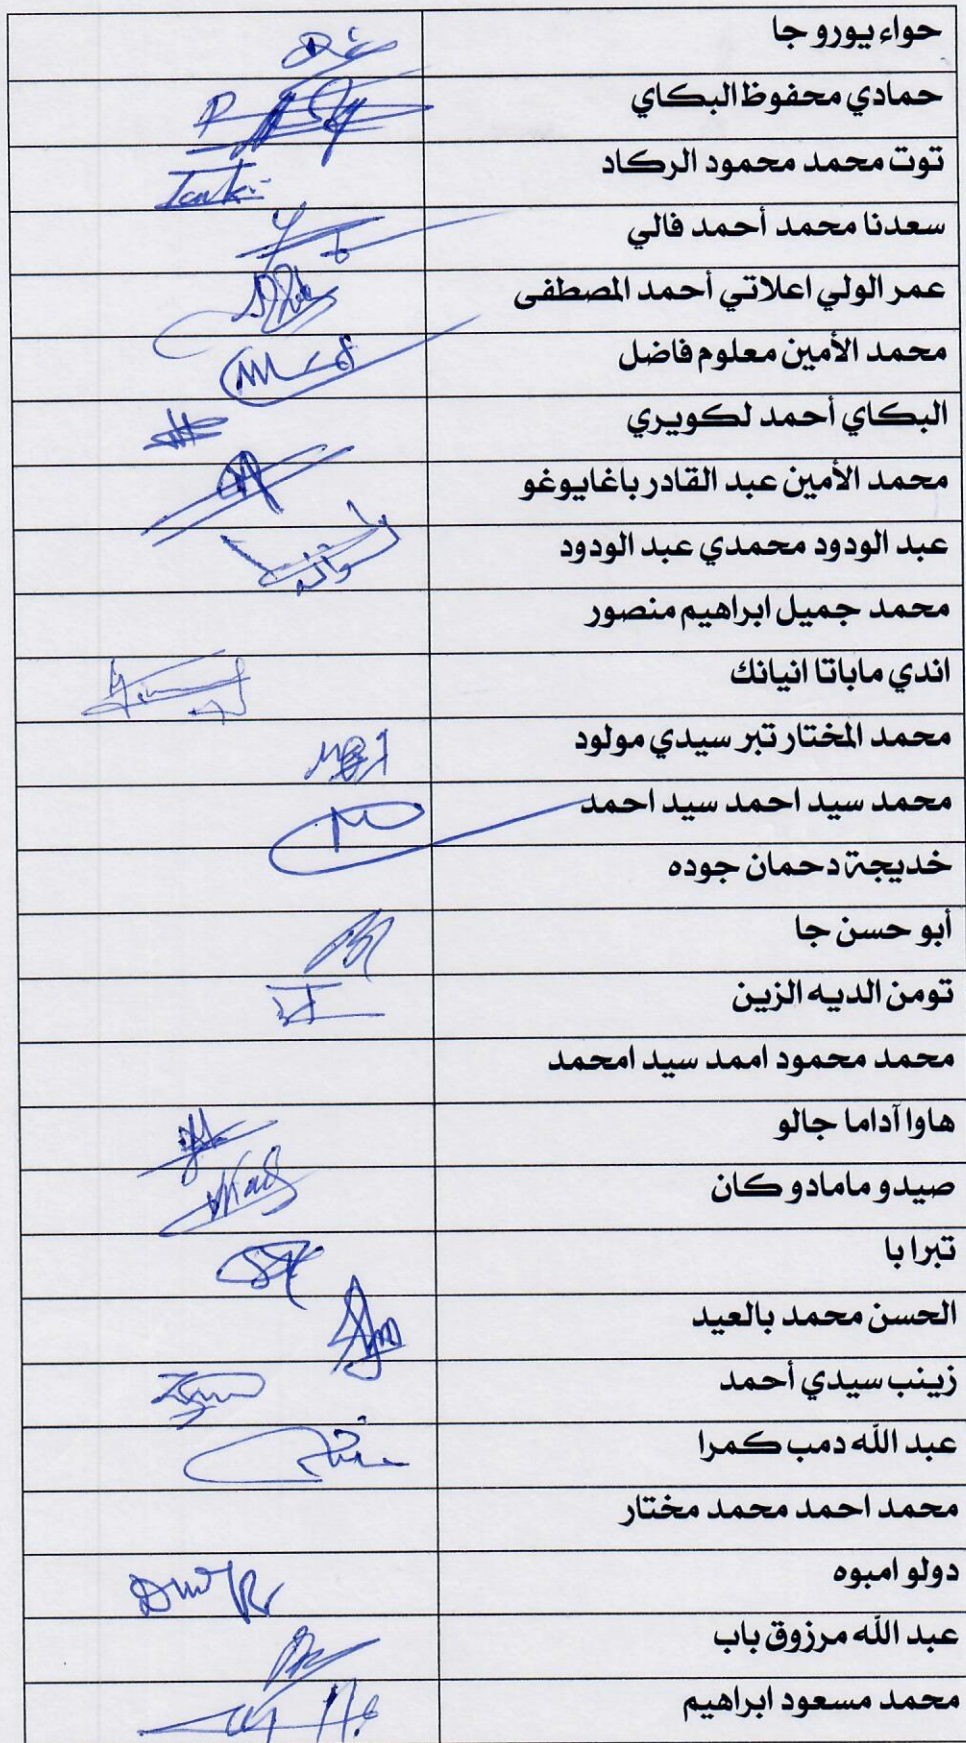 حواء يورو جا
حمادي محفوظ البكاي
توت محمد محمود الركاد
سعدنا محمد أحمد فالي
عمر الولي اعلاتي أحمد المصطفى
محمد الأمين معلوم فاضل
البكاي أحمد لكويري
محمد الأمين عبد القادر باغايوغو
عبد الودود محمدي عبد الودود
محمد جميل ابراهيم منصور
اندي ماباتا انيانك
محمد المختار تبر سيدي مولود
محمد سيد احمد سيد احمد
خديجة دحمان جوده
أبو حسن جا
تومن الديه الزين
محمد محمود اممد سيد امحمد
هاوا آداما جالو
صيدو مامادو كان
تبرا با
الحسن محمد بالعيد
زينب سيدي أحمد
عبد الله دمب كمرا
محمد احمد محمد مختار
دولو امبوه
عبد الله مرزوق باب
محمد مسعود ابراهيم